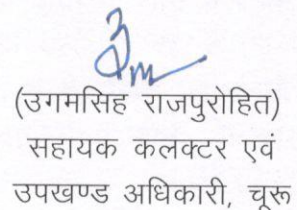 (उगमसिह राजपुरोहित)
सहायक कलक्टर एवं
उपखण्ड अधिकारी, चूरू